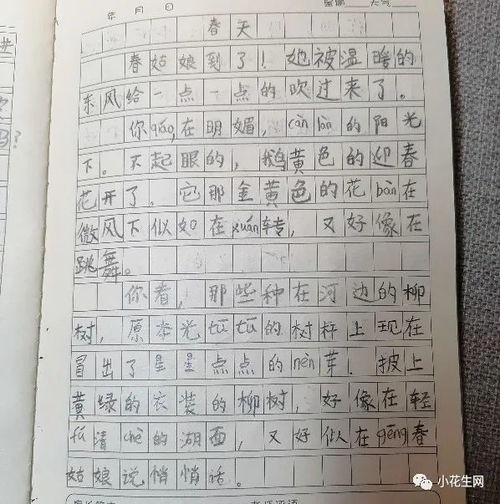 年 月 日 星期 天气
春天
春姑娘到了！她被温暖的
东风给一点一点的吹过来了。
你qiáo，在明媚，càn làn的阳光
下。不起眼的，鹅黄色的迎春
花开了。它那金黄色的花bàn在
微风下似如在xuán转，又好像在
跳舞。
你看，那些种在河边的柳
树，原本光tū tū的树杆上现在
冒出了星星点点的nèn芽！披上
黄绿的衣装的柳树，好像在轻
fú清chè的湖面，又好似在gēng春
姑娘说悄悄话。
吗？
小花生网